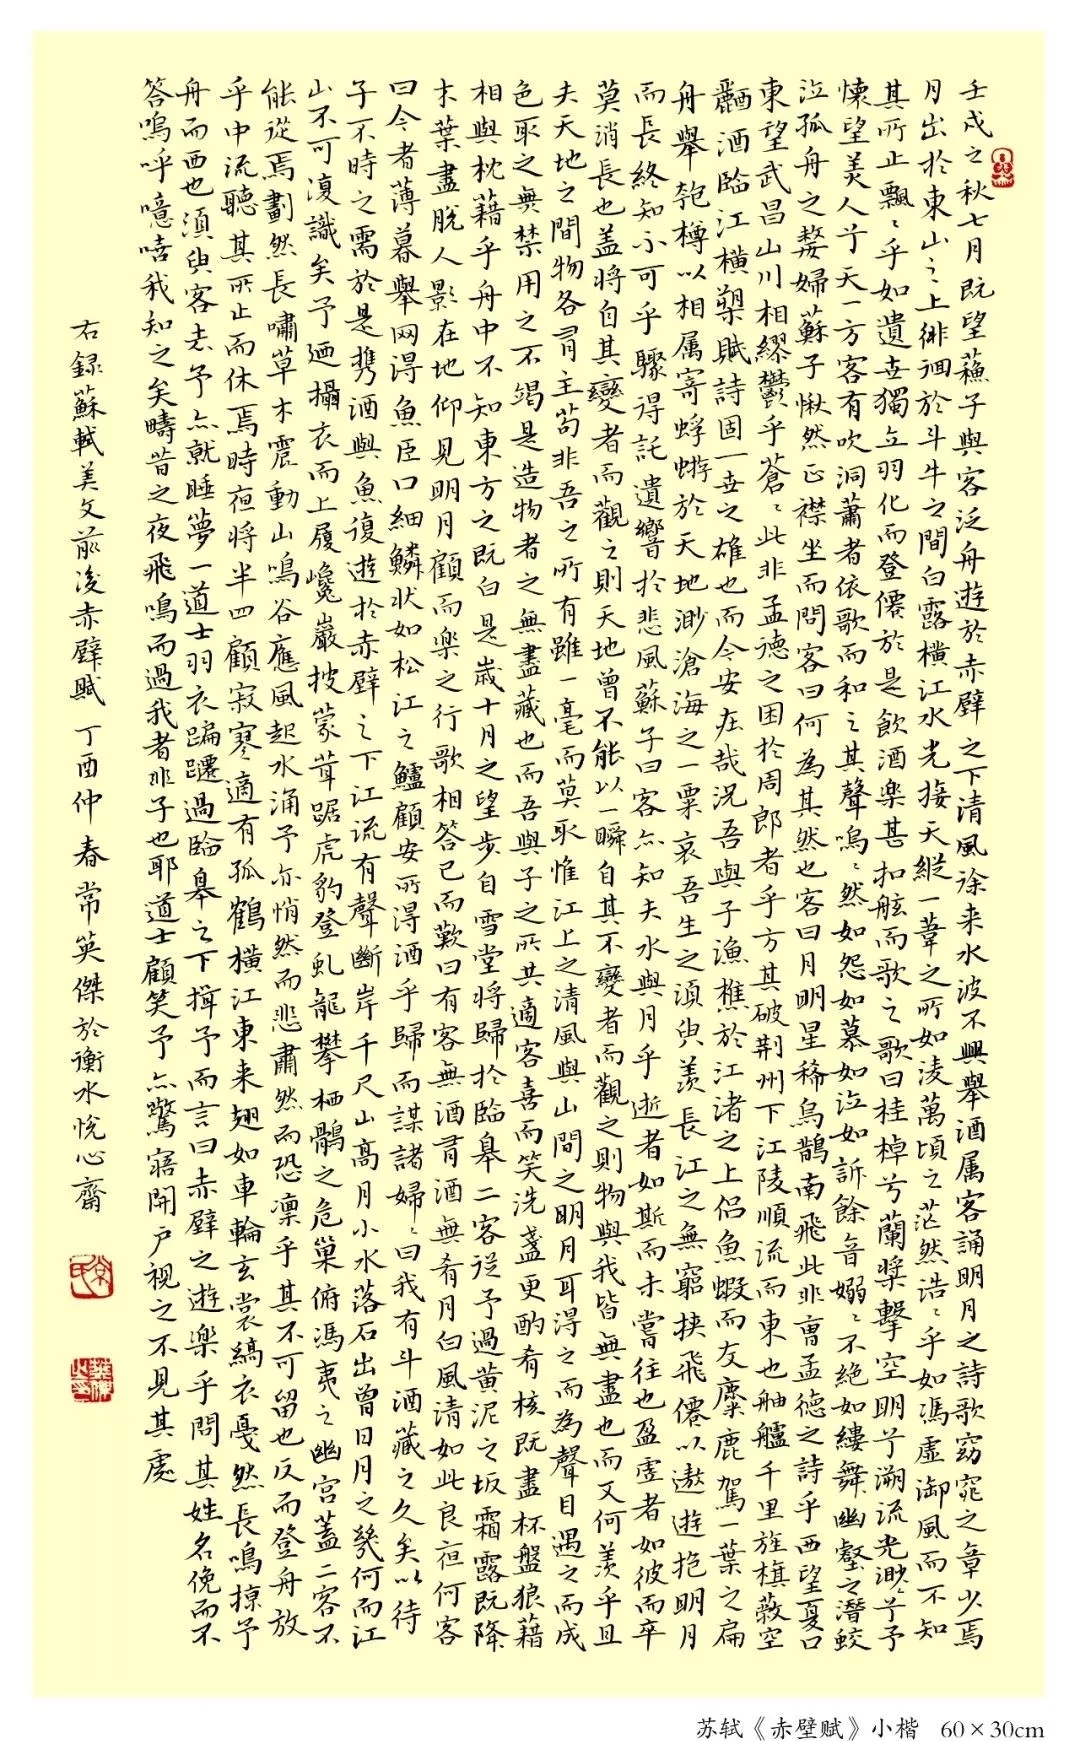 壬戌之秋七月既望蘓子與客泛舟遊於赤壁之下清風徐来水波不興舉酒属客誦明月之詩歌窈窕之章少焉
月出於東山之上徘徊於斗牛之間白露横江水光接天縱一葦之所如淩萬頃之茫然浩〻乎如馮虚御風而不知
其所止飄〻乎如遺世獨立羽化而登僊於是飲酒楽甚扣舷而歌之歌曰桂棹兮蘭槳擊空明兮溯流光渺〻兮予
懷望美人兮天一方客有吹洞蕭者依歌而和之其聲嗚〻然如怨如慕如泣如訴餘音嫋〻不絶如縷舞幽壑之潛蛟
泣孤舟之嫠婦蘇子愀然正襟坐而問客曰何為其然也客曰月明星稀烏鵲南飛此非曹孟徳之詩乎西望夏口
東望武昌山川相繆鬱乎蒼〻此非孟徳之困於周郎者乎方其破荆州下江陵順流而東也舳艫千里旌旗蔽空
釃酒臨江横槊賦詩固一世之雄也而今安在哉況吾與子漁樵於江渚之上侣魚蝦而友麋鹿駕一葉之扁
舟舉匏樽以相属寄蜉蝣於天地渺滄海之一粟哀吾生之須臾羨長江之無窮挟飛僊以遨遊抱明月
而長終知不可乎驟得託遺響於悲風蘇子曰客亦知夫水與月乎逝者如斯而未嘗往也盈虚者如彼而卒
莫消長也盖将自其變者而觀之則天地曾不能以一瞬自其不變者而觀之則物與我皆無盡也而又何羨乎且
夫天地之間物各有主苟非吾之所有雖一毫而莫取惟江上之清風與山間之明月耳得之而為聲目遇之而成
色取之無禁用之不竭是造物者之無盡藏也而吾與子之所共適客喜而笑洗盞更酌肴核既盡杯盤狼藉
相與枕藉乎舟中不知東方之既白是歳十月之望步自雪堂将歸於臨皋二客従予過黄泥之坂霜露既降
木葉盡脱人影在地仰見明月顧而楽之行歌相答已而歎曰有客無酒有酒無肴月白風清如此良夜何客
曰今者薄暮舉网得魚臣口細鱗状如松江之鱸顧安所得酒乎歸而謀諸婦〻曰我有斗酒藏之久矣以待
子不時之需於是携酒與魚復遊於赤壁之下江流有聲斷岸千尺山高月小水落石出曾日月之幾何而江
山不可復識矣予迺攝衣而上履巉巖披蒙茸踞虎豹登虬龍攀栖鶻之危巢俯馮夷之幽宫蓋二客不
能従焉劃然長嘯草木震動山鳴谷應風起水涌予亦悄然而悲肅然而恐凛乎其不可留也反而登舟放
乎中流聽其所止而休焉時夜将半四顧寂寥適有孤鶴横江東来翅如車輪玄裳縞衣戛然長鳴掠予
舟而西也須臾客去予亦就睡夢一道士羽衣蹁躚過臨皋之下揖予而言曰赤壁之遊楽乎問其姓名俛而不
答嗚呼噫嘻我知之矣疇昔之夜飛鳴而過我者非子也耶道士顧笑予亦驚寤開户视之不見其處
右録蘇軾美文前後赤壁賦丁酉仲春常英傑於衡水悦心齋
苏轼《赤壁赋》小楷 60×30cm